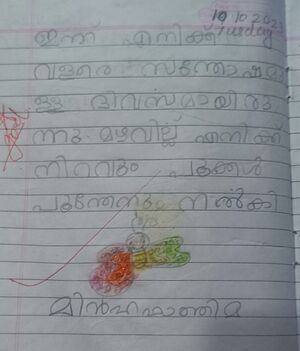 10 10 2023
Tuesday
ഇന്ന് എനിക്ക്
വളരെ സന്തോഷമു
ള്ള ദിവസമായിരു
ന്നു മഴവില്ല് എനിക്ക്
നിറവും പൂക്കൾ
പൂന്തേനും നൽകി
മിൻഹഫാത്തിമ